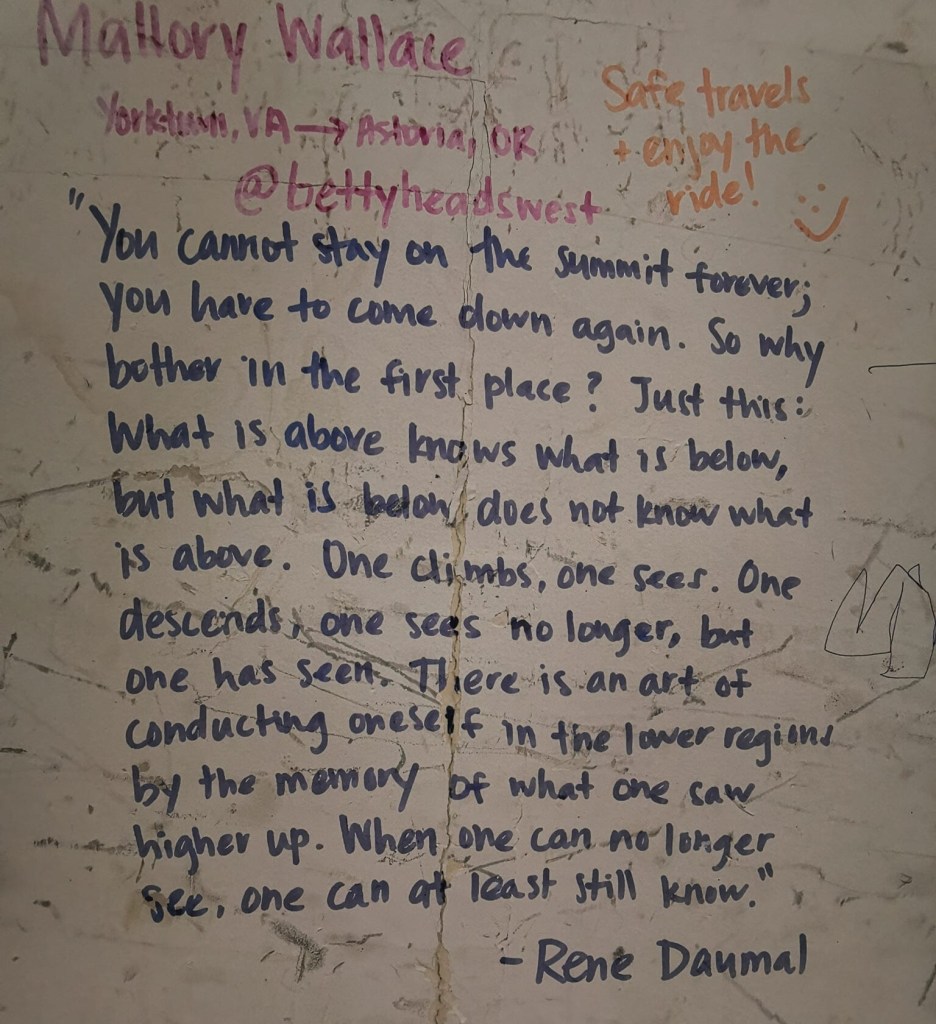 Mallory Wallace
Yorktown, VA → Astoria, OR
@bettyheadswest
Safe travels
+ enjoy the
ride! :)
"You cannot stay on the summit forever;
you have to come down again. So why
bother in the first place? Just this:
What is above knows what is below,
but what is below does not know what
is above. One climbs, one sees. One
descends, one sees no longer, but
one has seen. There is an art of
conducting oneself in the lower regions
by the memory of what one saw
higher up. When one can no longer
see, one can at least still know."
- Rene Daumal